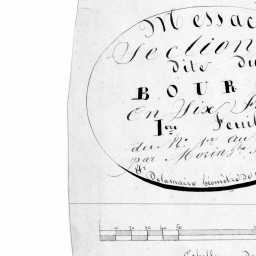 Messac
Section
dite du
BOUR
En Six F
1re Feuil
du N° 1er au
par Moria
Delamaire Géomètre du
Echelle de